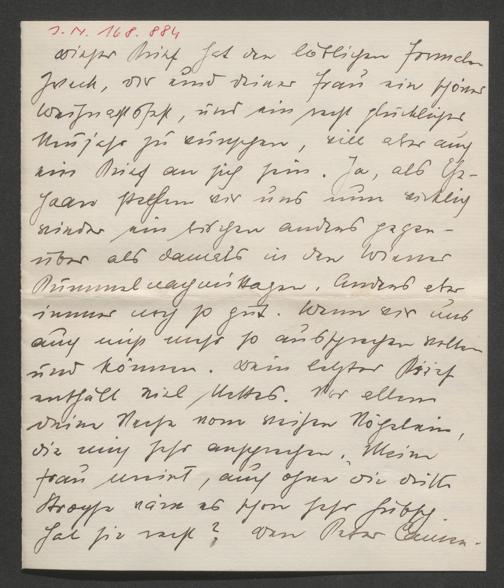 I.N. 168.884
dieser Brief hat den löblichen Formeln
zweck, dir und deiner Frau ein schönes
Weihnachtsfest, und ein recht glückliches
Neujahr zu wünschen, will aber auch
ein Brief an sich sein. Ja, als Eh-
paare stehen wir uns nun wirklich
wieder ein bischen anders gegen-
über als damals in den Wiener
Bummelnachmittagen. Anders aber
immer noch so gut. Wenn wir uns
auch nicht mehr so aussprechen wollen
und können. Dein letzter Brief
enthält viel Nettes. Vor allem
deine Verse vom weissen Vögelein,
die mich sehr ansprechen. Meine
Frau meint, auch ohne die dritte
Strophe wäre es schon sehr hübsch
hat sie recht? Den Peter Camen-